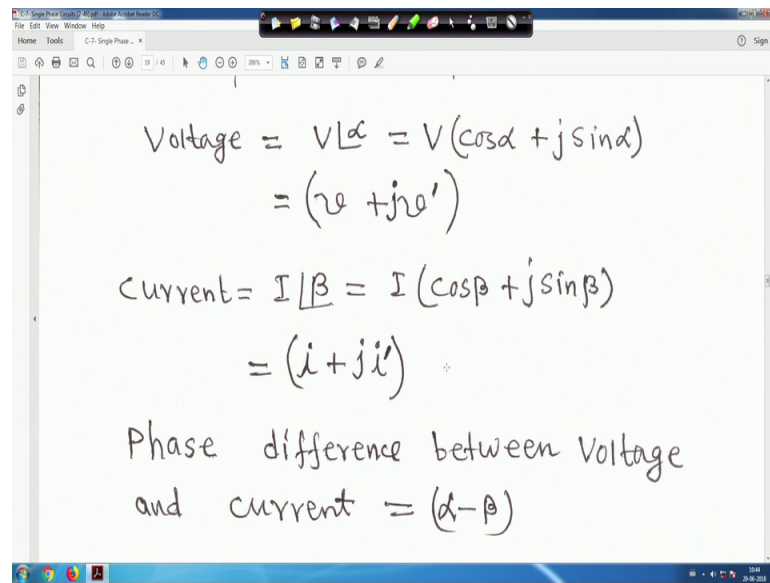 C-7- Single Phase Circuits [2-46].pdf - Adobe Acrobat Reader DC
File Edit View Window Help
Home Tools C-7- Single Phase ... × Sign
19 / 45 200%
Voltage = V∠α = V(cosα + j sinα)
= (v + jv')
Current = I∠β = I(cosβ + j sinβ)
= (i + ji')
Phase difference between Voltage
and current = (α-β)
10:44
29-06-2018